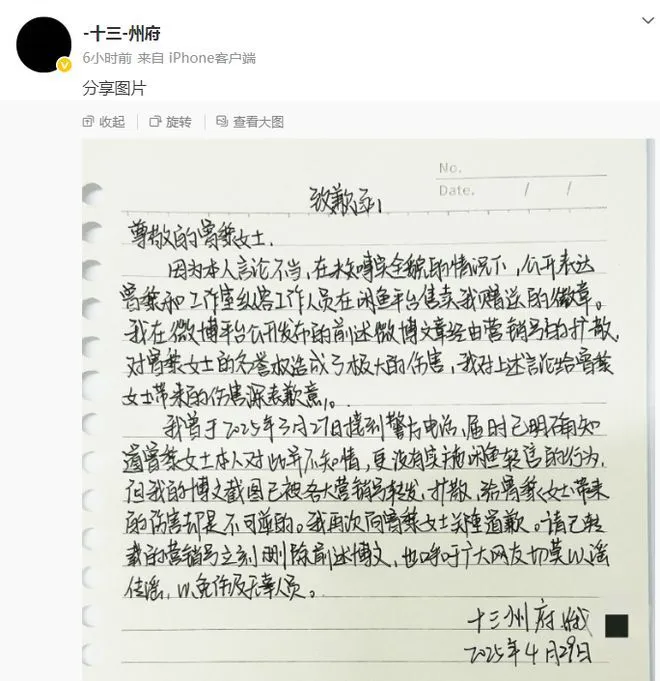 -十三-州府
6小时前 来自 iPhone客户端
分享图片
收起 旋转 查看大图
No.
Date. / /
致歉函
尊敬的曾黎女士.
因为本人言论不当,在未知晓全貌的情况下,公开表达
曾黎和工作室纵容工作人员在闲鱼平台售卖我赠送的徽章。
我在微博平台公开发布的前述微博文章经由营销号的扩散,
对曾黎女士的名誉权造成了极大的伤害,我对上述言论给曾黎
女士带来的伤害深表歉意。
我曾于2025年3月27日接到警方电话,届时已明确知
道曾黎女士本人对此并不知情,更没有实施闲鱼转售的行为,
但我的博文截图已被各大营销号转发、扩散,给曾黎女士带来
的伤害却是不可逆的。我再次向曾黎女士郑重道歉。请已转
载的营销号立刻删除前述博文,也呼吁广大网友切莫以谣
传谣,以免伤及无辜人员。
十三州府
2025年4月29日